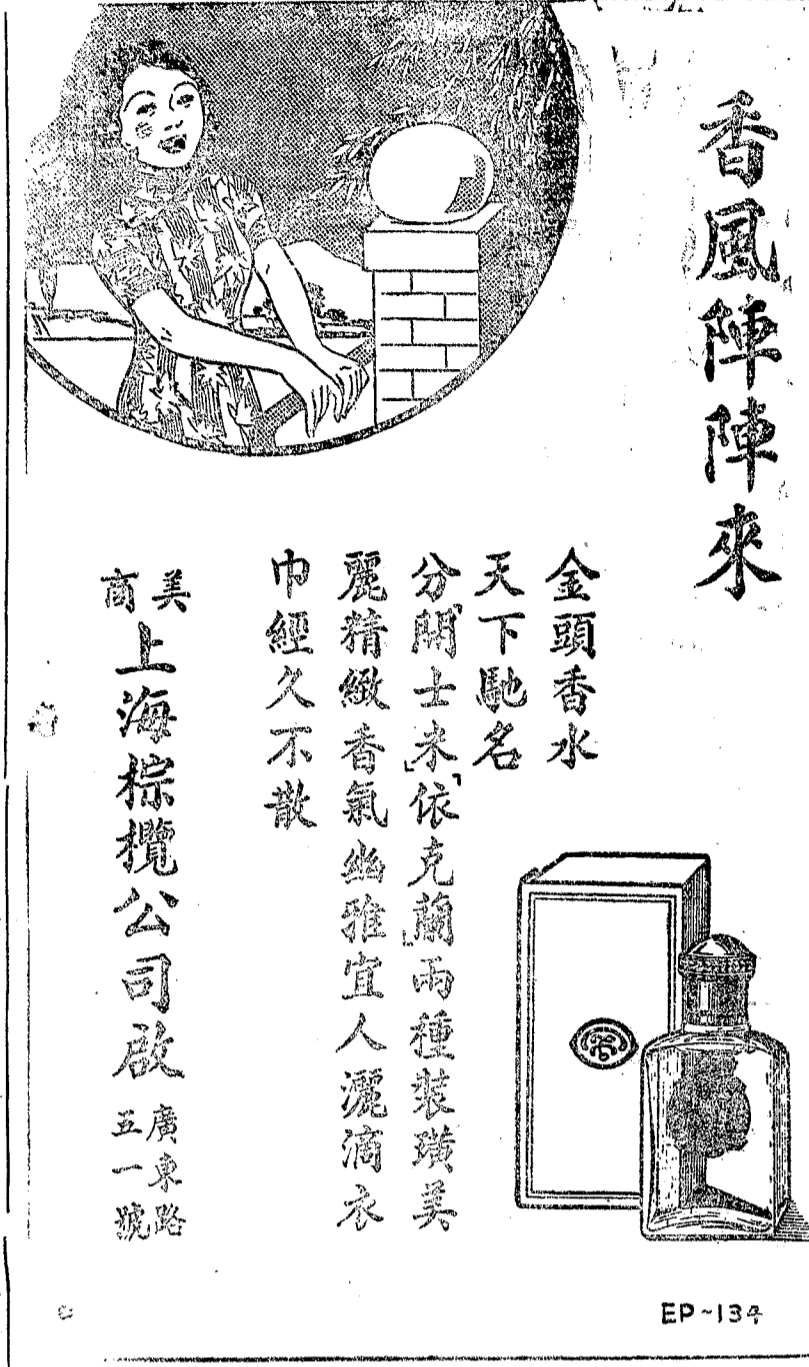 香風陣陣來
金頭香水
天下馳名
分「閞士米」「依克蘭」兩種裝璜美
麗精緻香氣幽雅宜人灑滴衣
巾經久不散
美商
上海棕欖公司啟
廣東路
五一號
EP~13